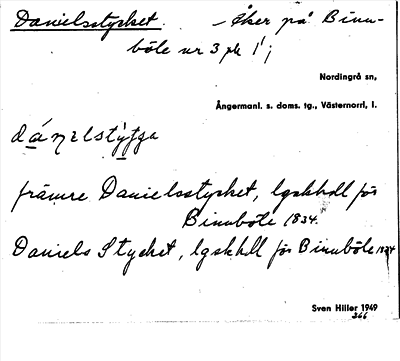 Danielsstycket. – Åker på Binn-
böle nr 3 pk 1;
Nordingrå sn,
Ångermanl. s. doms. tg., Västernorrl. l.
främre Danielsstycket, lgskhdl för
Binnböle 1834.
Daniels Stycket, lgskhdl för Binnböle 1834
Sven Hiller 1949
366